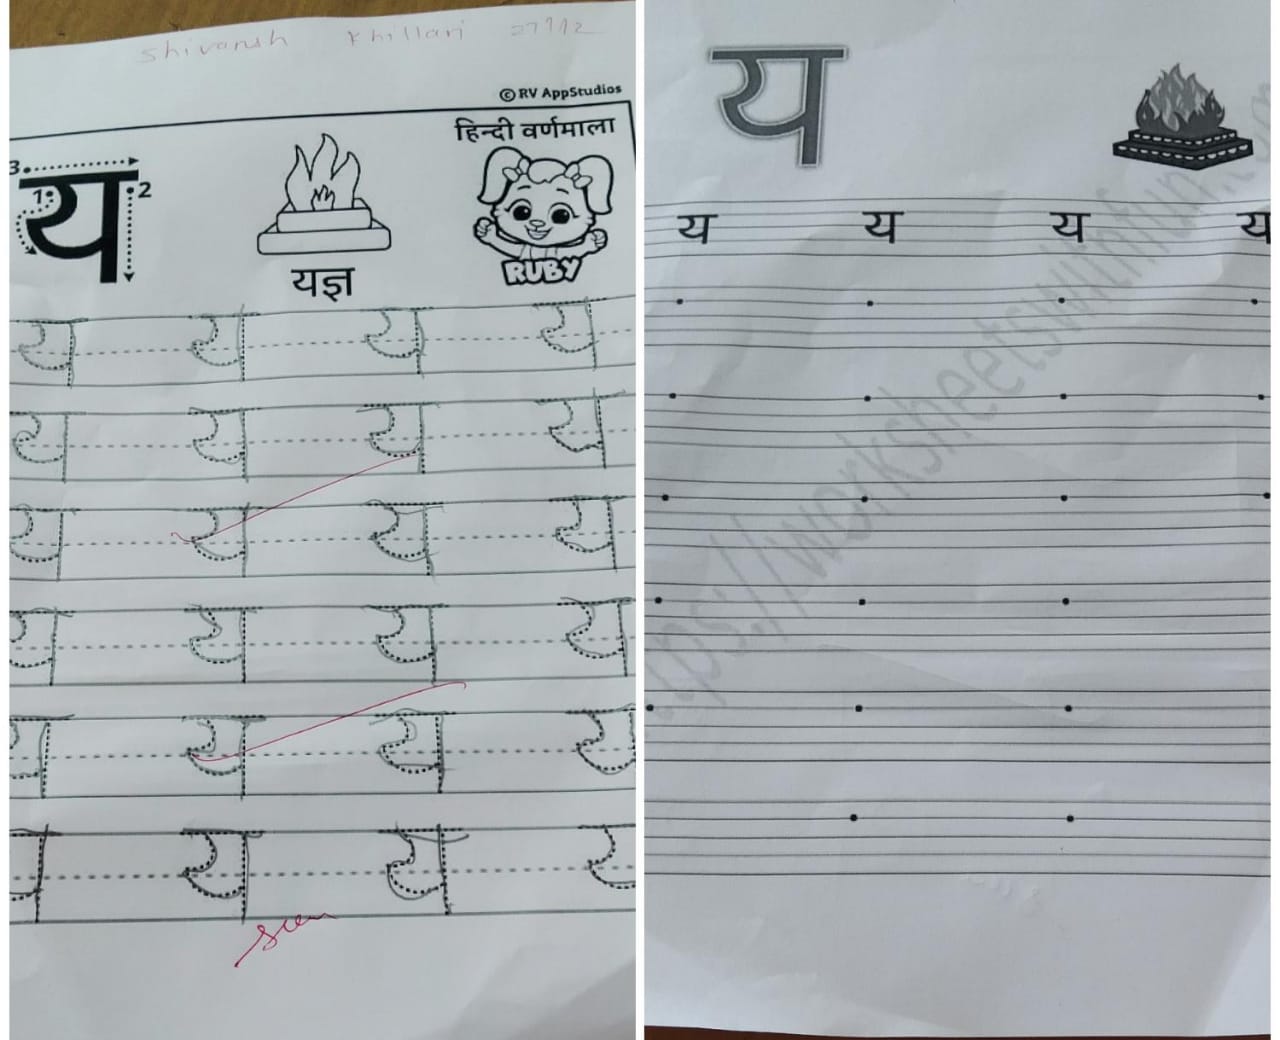 shivansh khillari 27112
© RV AppStudios
हिन्दी वर्णमाला
3 1 2
य
यज्ञ
RUBY
य य य य
य य य य
य य य य
य य य य
य य य य
य य य य
seen
य
य य य य
https://worksheetswithfun.com